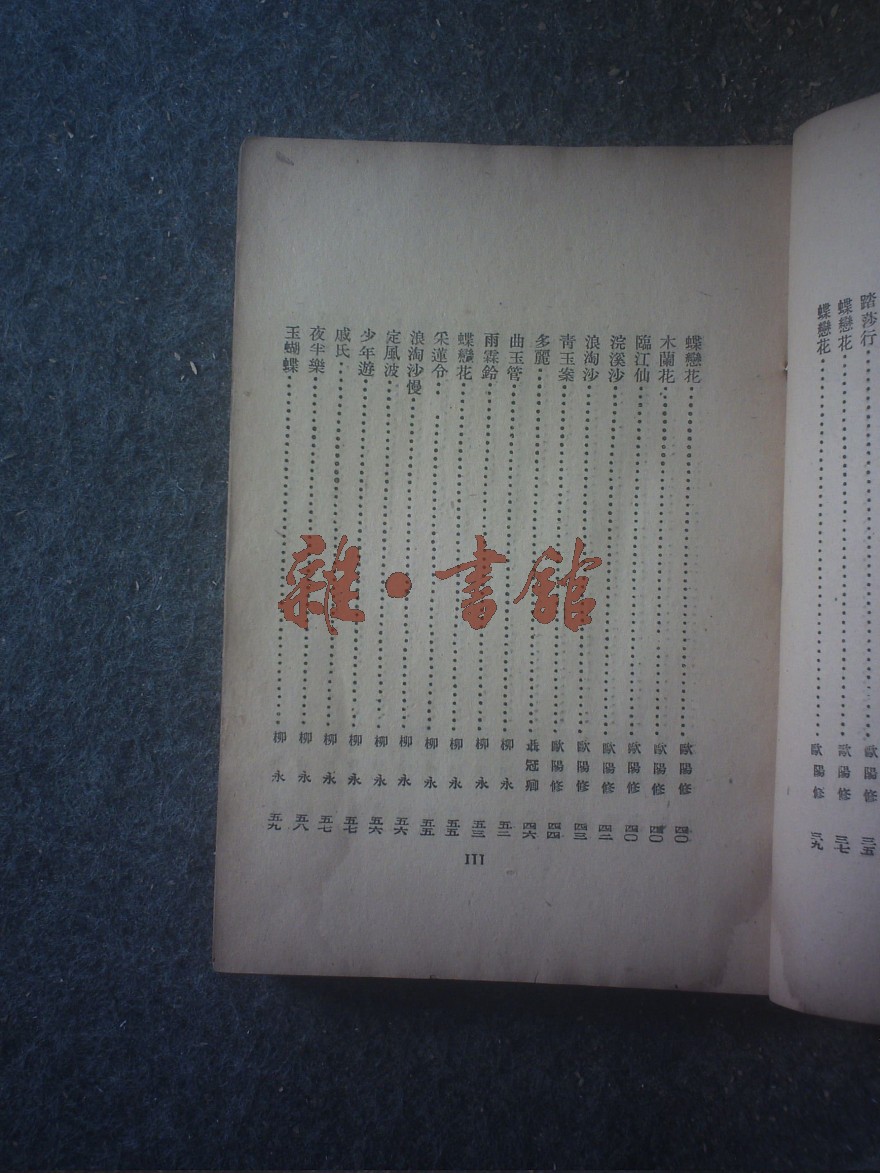 踏莎行
蝶戀花……歐陽修 三七
蝶戀花……歐陽修 三九
蝶戀花……歐陽修 四〇
木蘭花……歐陽修 四〇
臨江仙……歐陽修 四〇
浣溪沙……歐陽修 四二
浪淘沙……歐陽修 四三
青玉案……歐陽修 四四
多麗……聶冠卿 四六
曲玉管……柳永 五二
雨霖鈴……柳永 五三
蝶戀花……柳永 五五
采蓮令……柳永 五五
浪淘沙慢……柳永 五六
定風波……柳永 五六
少年遊……柳永 五七
戚氏……柳永 五七
夜半樂……柳永 五八
玉蝴蝶……柳永 五九
III
雜·書館